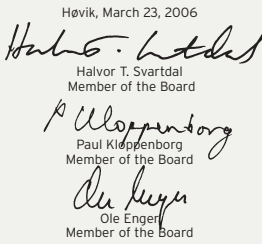 Høvik, March 23, 2006
Halvor T. Svartdal
Member of the Board
P Kloppenborg
Paul Kloppenborg
Member of the Board
Ole Enger
Ole Enger
Member of the Board